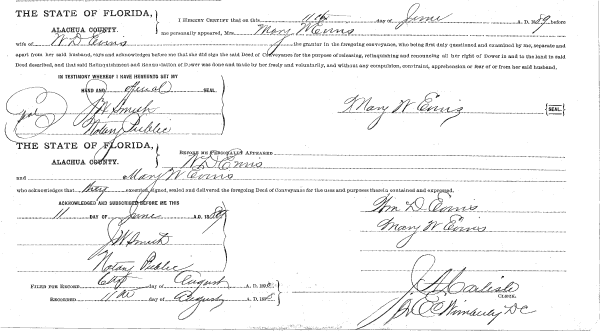 THE STATE OF FLORIDA,
ALACHUA COUNTY.
I HEREBY CERTIFY that on this 11th day of June A. D. 1889 before
me personally appeared, Mrs. Mary W Ennis
wife of W D Ennis the grantor in the foregoing conveyance, who being first duly questioned and examined by me, separate and
apart from her said husband, says and acknowledges before me that she did sign the said Deed of Conveyance for the purpose of releasing, relinquishing and renouncing all her right of Dower in and to the land in said
Deed described, and that said Relinquishment and Renunciation of Dower was done and made by her freely and voluntarily, and without any compulsion, constraint, apprehension or fear of or from her said husband.
IN TESTIMONY WHEREOF I HAVE HEREUNTO SET MY
HAND AND official SEAL.
J W Smith
Notary Public
Mary W Ennis SEAL
THE STATE OF FLORIDA,
ALACHUA COUNTY.
BEFORE ME PERSONALLY APPEARED
W D Ennis
and Mary W Ennis
who acknowledges that they executed, signed, sealed and delivered the foregoing Deed of Conveyance for the uses and purposes therein contained and expressed.
ACKNOWLEDGED AND SUBSCRIBED BEFORE ME THIS
11 DAY OF June A.D. 1889
J W Smith
Notary Public
Wm D Ennis
Mary W Ennis
FILED FOR RECORD day of August A. D.
RECORDED 11th day of August A. D.
J. A. Carlisle
CLERK.
Wimberly DC